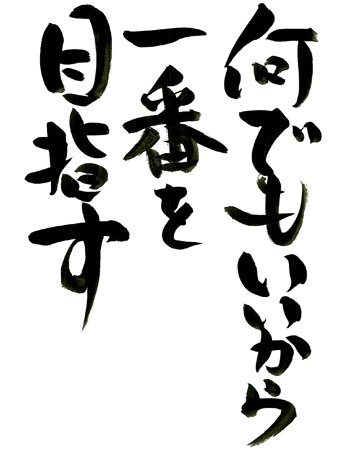 何でもいいから
一番を
目指す